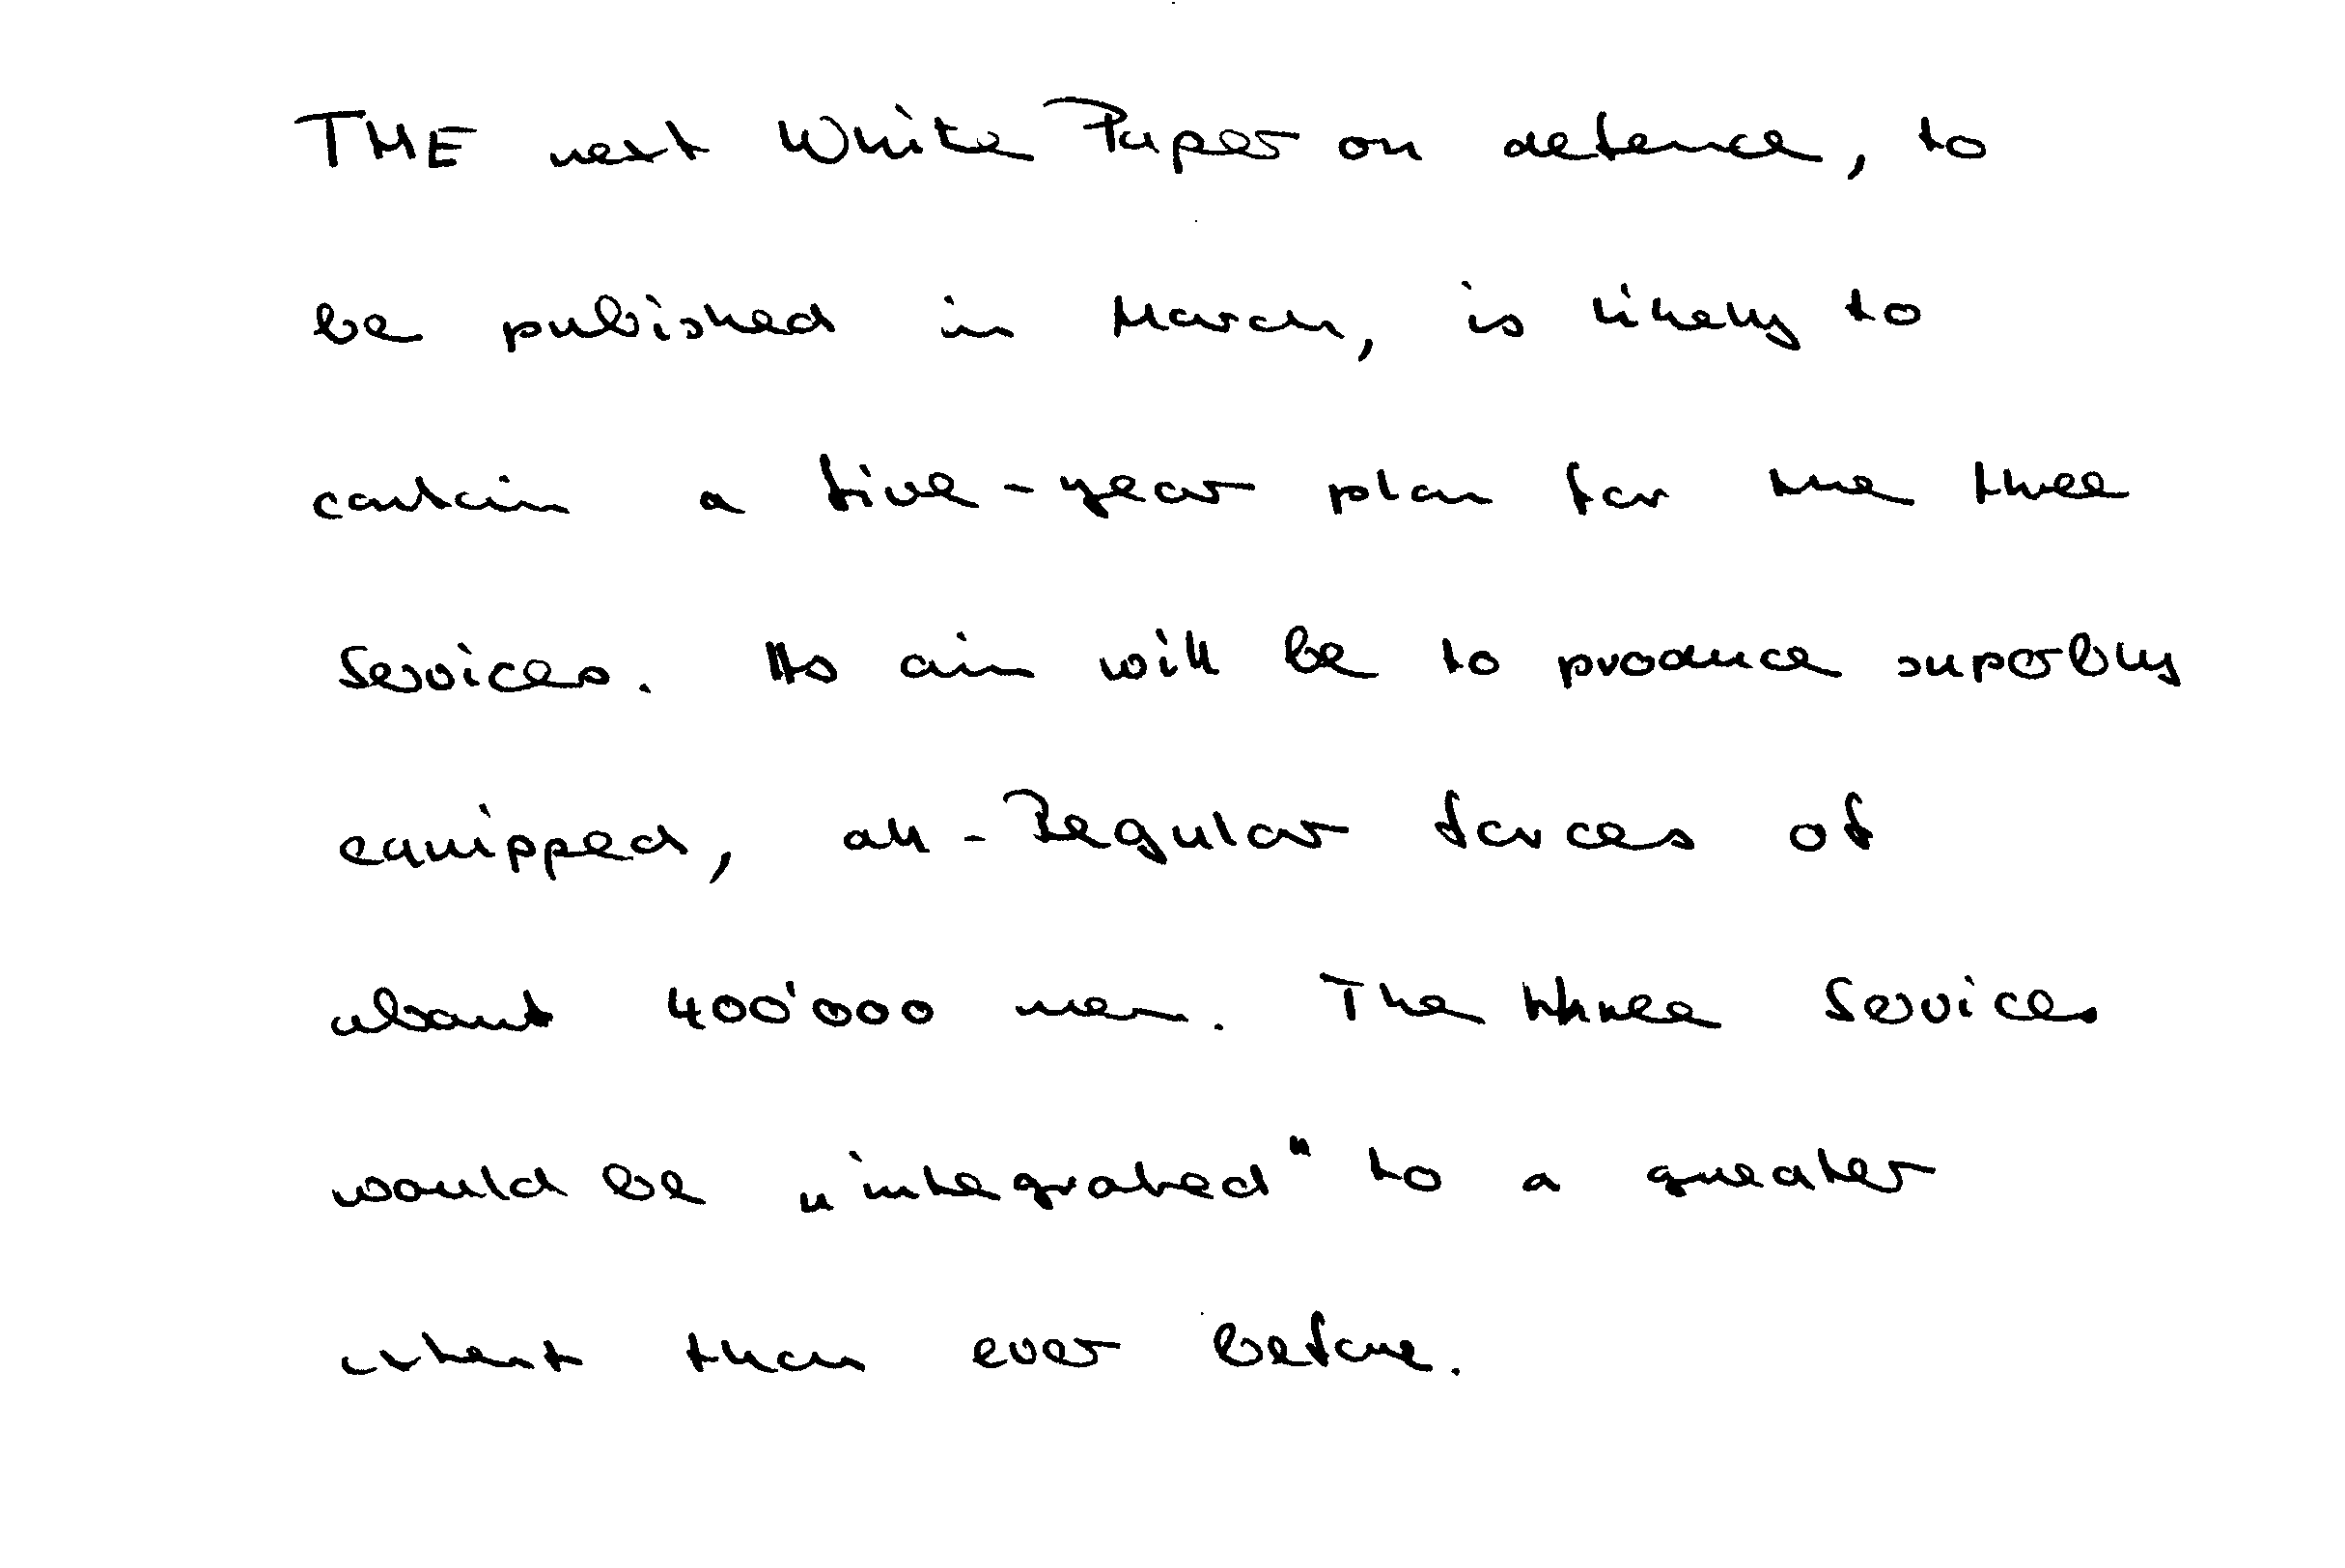 THE next White Paper on defence, to
be pubished in March, is likely to
contain a five-year plan for the three
Services. Its aim will be to produce superbly
equipped, all-Regular forces of
about 400'000 men. The three Services
would be „integrated" to a greater
extent than ever before.